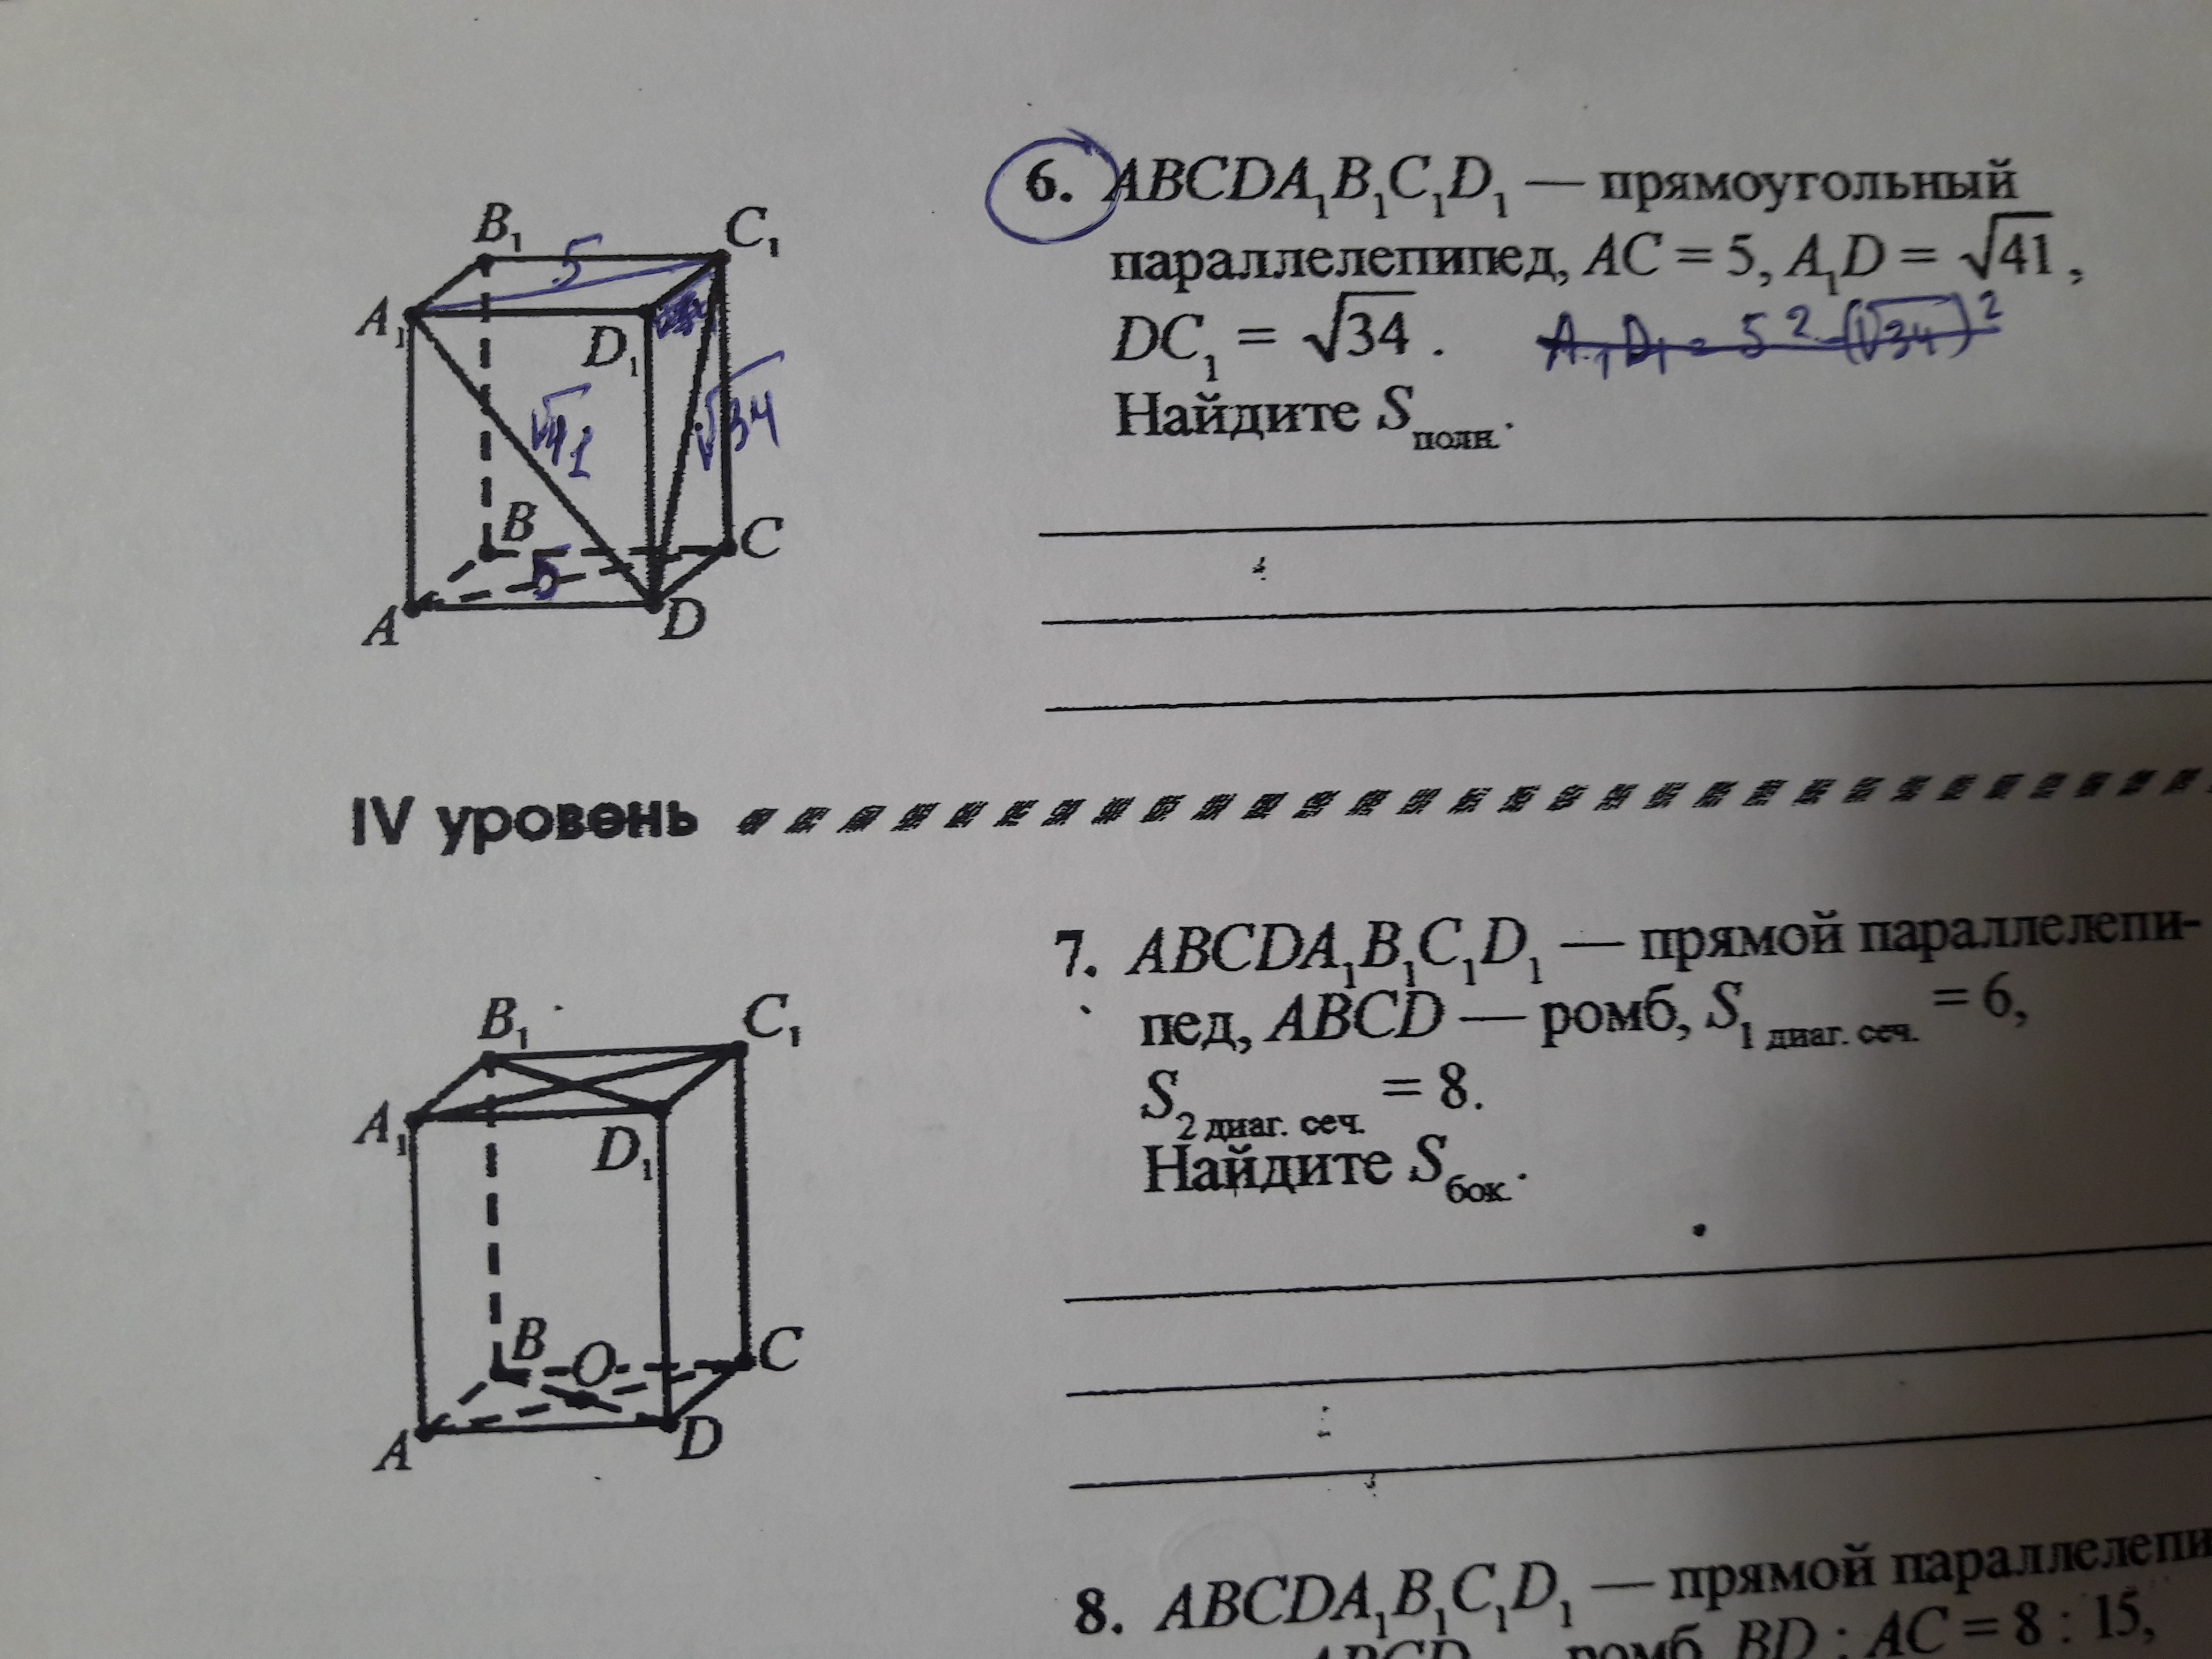 6. ABCDA₁B₁C₁D₁ — прямоугольный
параллелепипед, AC = 5, A₁D = √41,
DC₁ = √34. A₁D₁ = 5² - (√34)²
Найдите Sполн.
B₁ 5 C₁
A₁ D₁
√41 √34
B C
5
A D
IV уровень
7. ABCDA₁B₁C₁D₁ — прямой параллелепи-
пед, ABCD — ромб, S₁ диаг. сеч. = 6,
S₂ диаг. сеч. = 8.
Найдите Sбок.
B₁ C₁
A₁ D₁
B O C
A D
8. ABCDA₁B₁C₁D₁ — прямой параллелепи
ABCD ромб, BD : AC = 8 : 15,